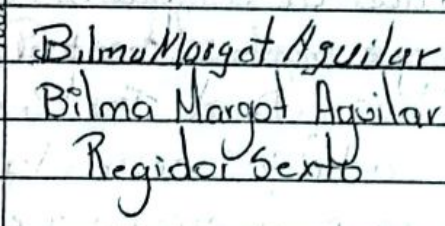 Bilma Margot Aguilar
Bilma Margot Aguilar
Regidor Sexto